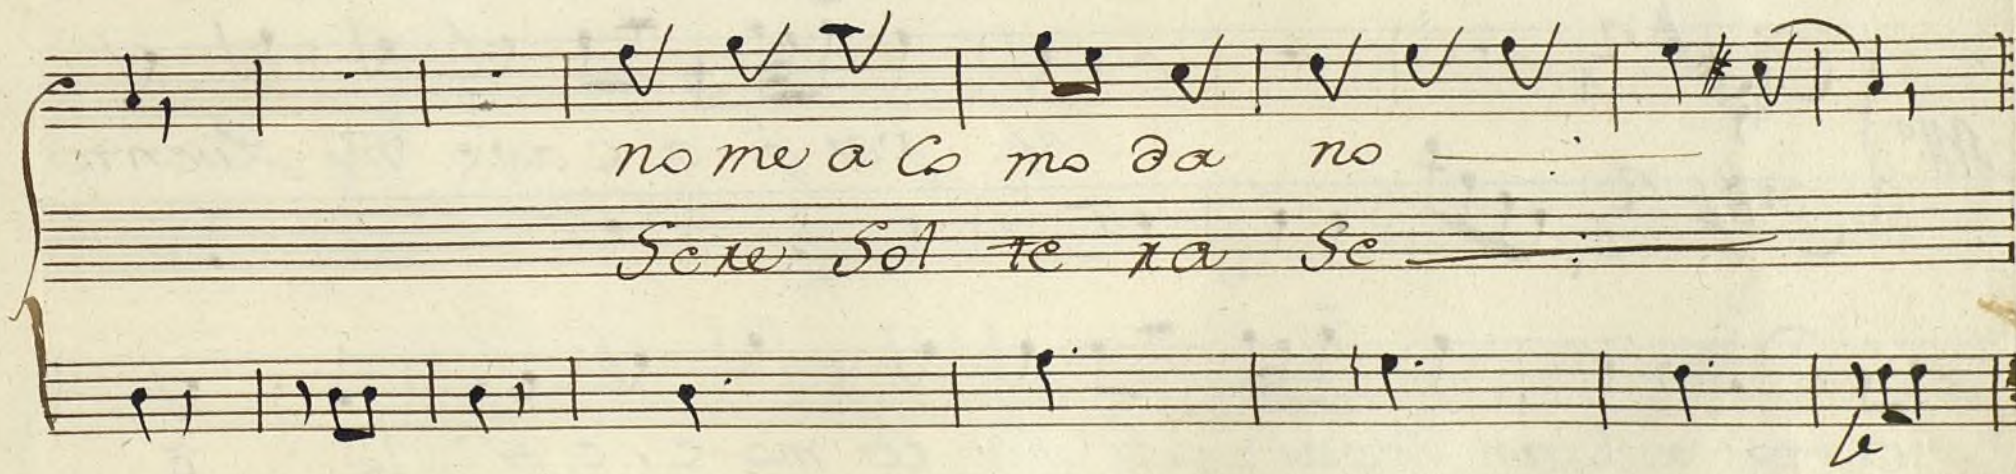 no me a Co mo da no
Sere Sol te ra Se